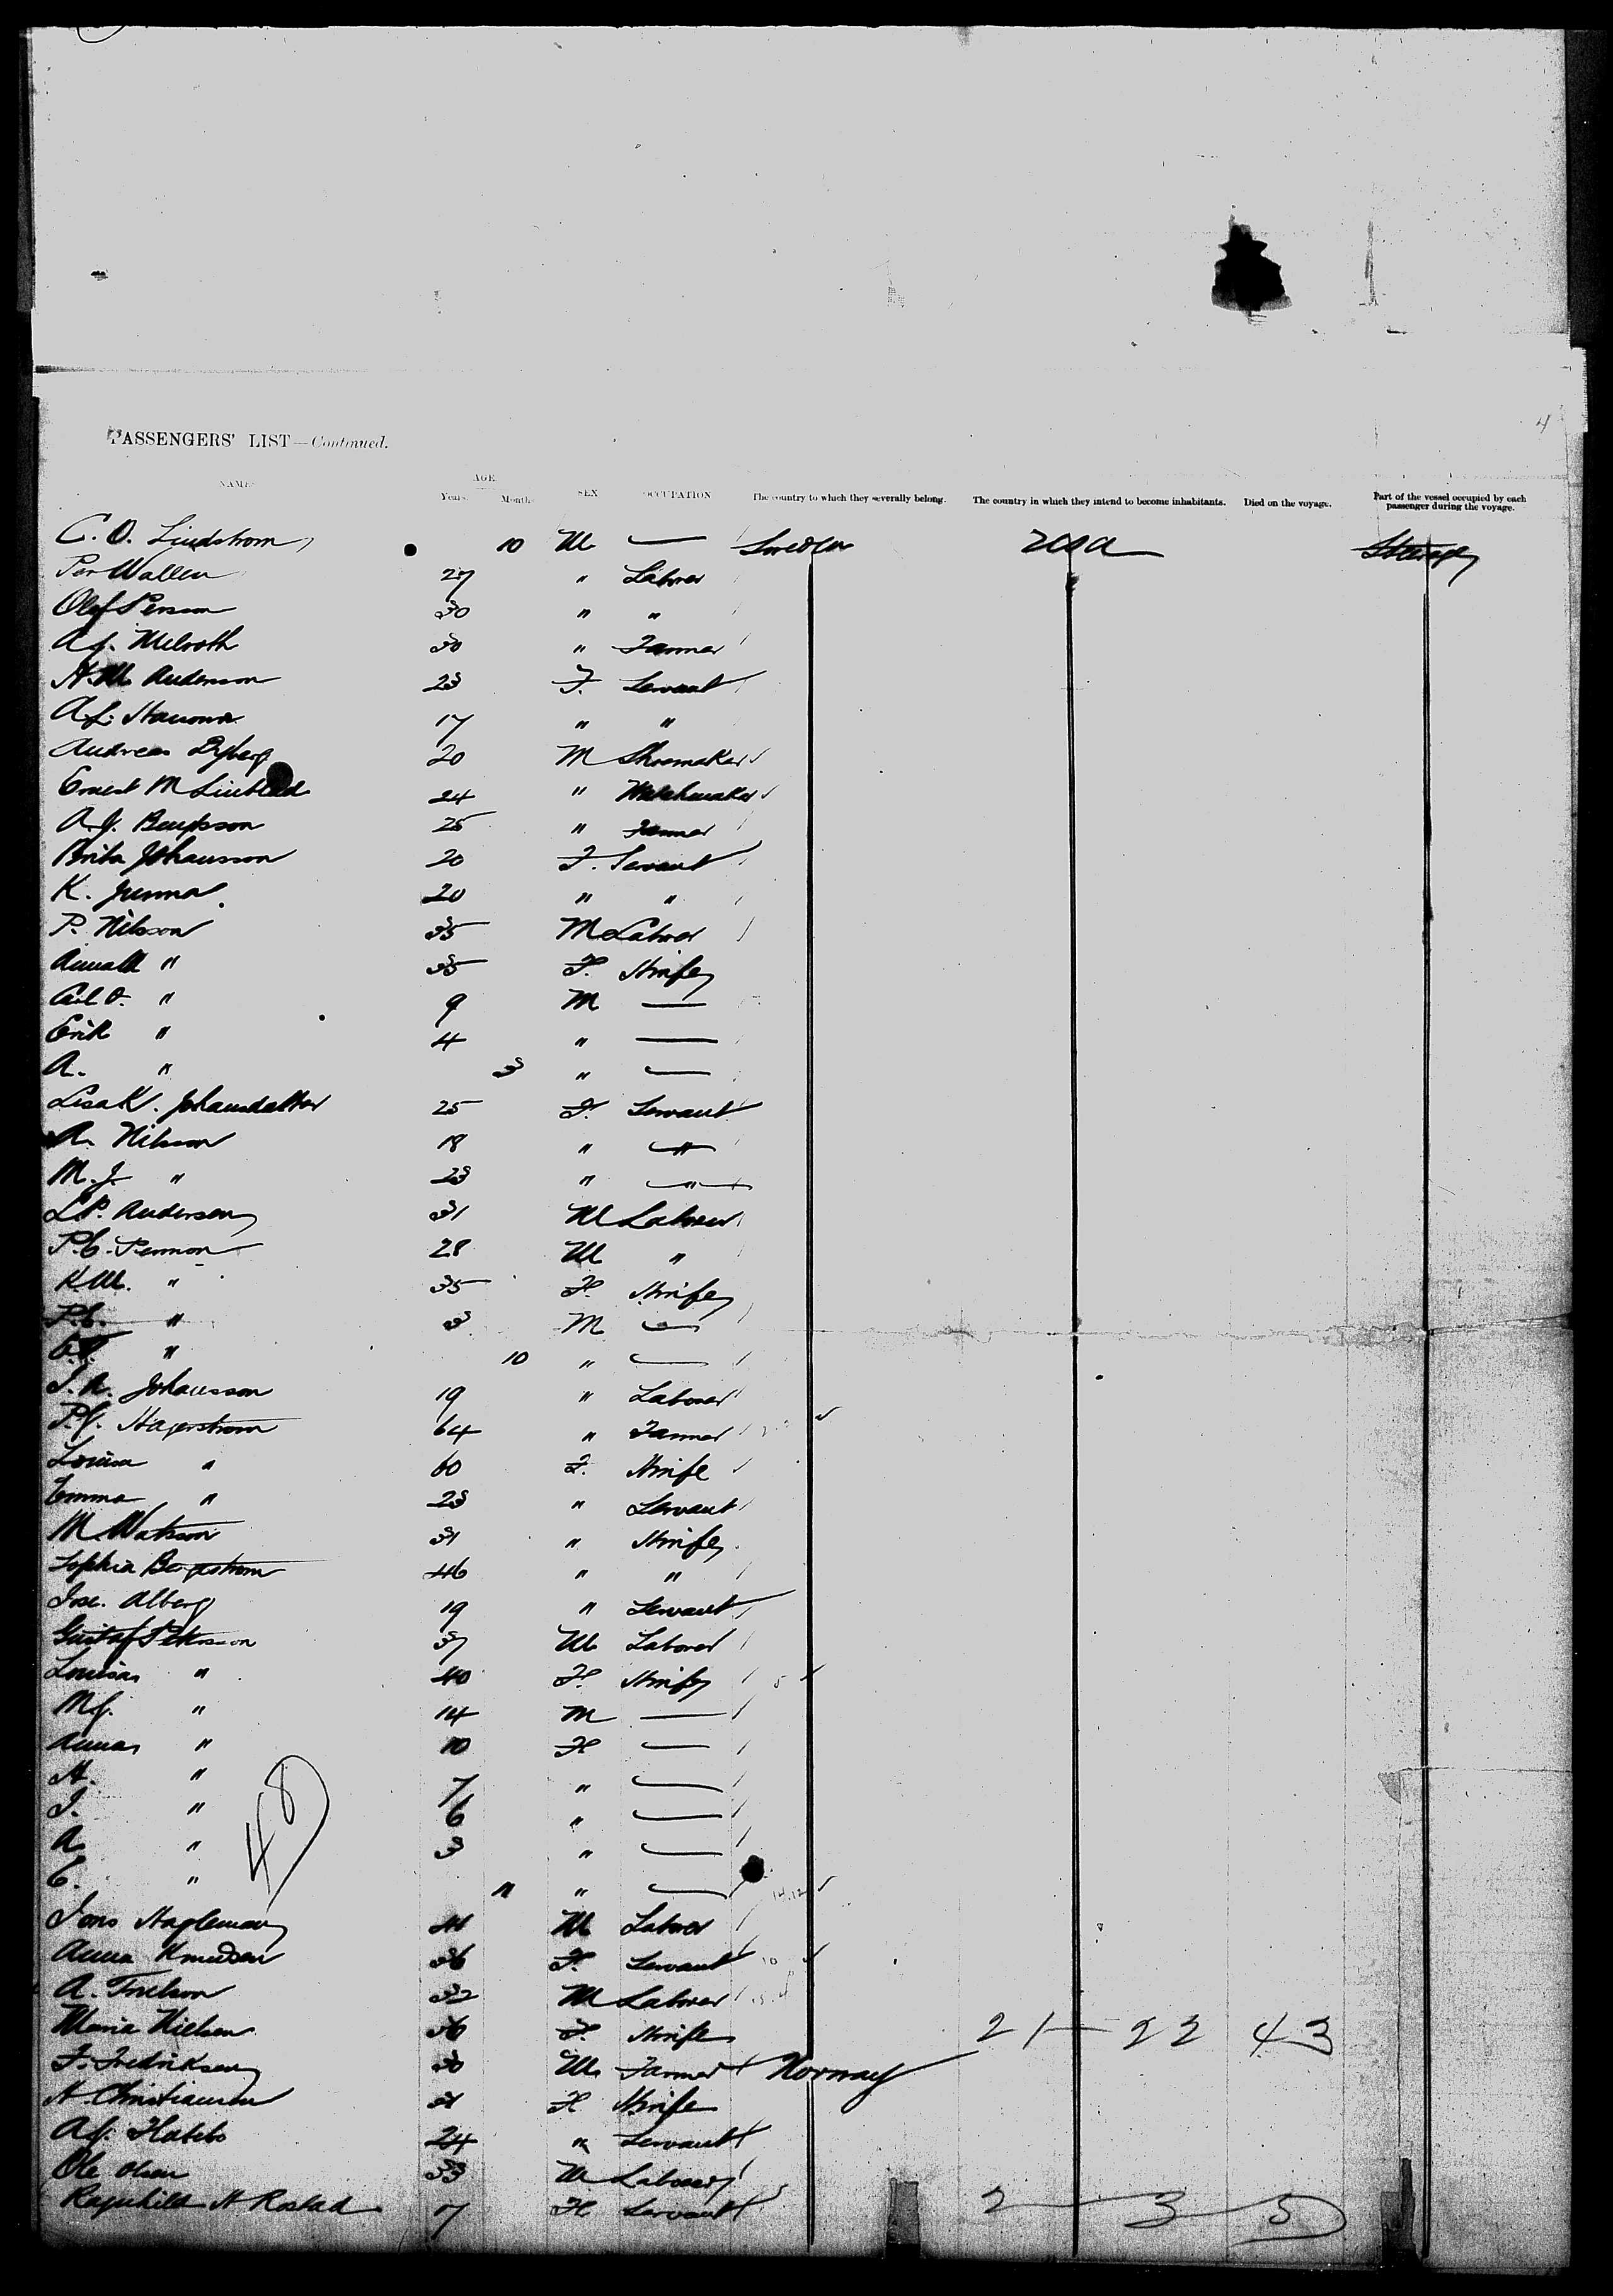 4
PASSENGERS' LIST—Continued.
NAME AGE Years. Months SEX OCCUPATION The country to which they severally belong. The country in which they intend to become inhabitants. Died on the voyage. Part of the vessel occupied by each passenger during the voyage.
C. O. Lindstrom 10 M — Sweden USA Steerage
Per Wallen 27 " Laborer
Olof Person 30 " "
A. J. Melroth 30 " Farmer
H. M. Anderson 23 F. Servant
A. L. 17 " "
Andreas Dyberg 20 M Shoemaker
Ernest M Linblad 24 " Watchmaker
A. J. Bengtsson 25 " Farmer
Brita Johansson 20 F. Servant
K. 20 " "
P. Nilsson 35 M Laborer
" 35 F. Wife
Carl O. " 9 M —
Erik " 4 " —
A. " 3 " —
Lisa K. Johansdatter 25 F. Servant
A. Nilsson 18 " "
M. J. " 23 " "
L. P. Anderson 31 M Laborer
P. C. Person 28 M "
K. M. " 35 F. Wife
P. C. " 3 M —
" 10 " —
J. A. Johansson 19 " Laborer
P. J. Hagerstrom 64 " Farmer
Louisa " 60 F. Wife
Emma " 23 " Servant
M. Watson 31 " Wife
Sophia Bergstrom 46 " "
Alberg 19 " Servant
Gustaf Peterson 37 M Laborer
Louisa " 40 F. Wife
M. J. " 14 M —
Anna " 10 F —
H. " 7 " —
J. " 6 " —
A. " 3 " —
E. " 11 " —
48
Jons Hagleman 41 M Laborer
Anna Knudsen 36 F. Servant
A. 32 M Laborer
Maria Nielsen 36 F. Wife 21 22 43
F. Fredriksen 30 M. Farmer Norway
H. Christiansen 31 F Wife
A. J. 24 " Servant
Ole Olsen 33 M Laborer
Ragnhild H Rostad 17 F Servant 2 3 5